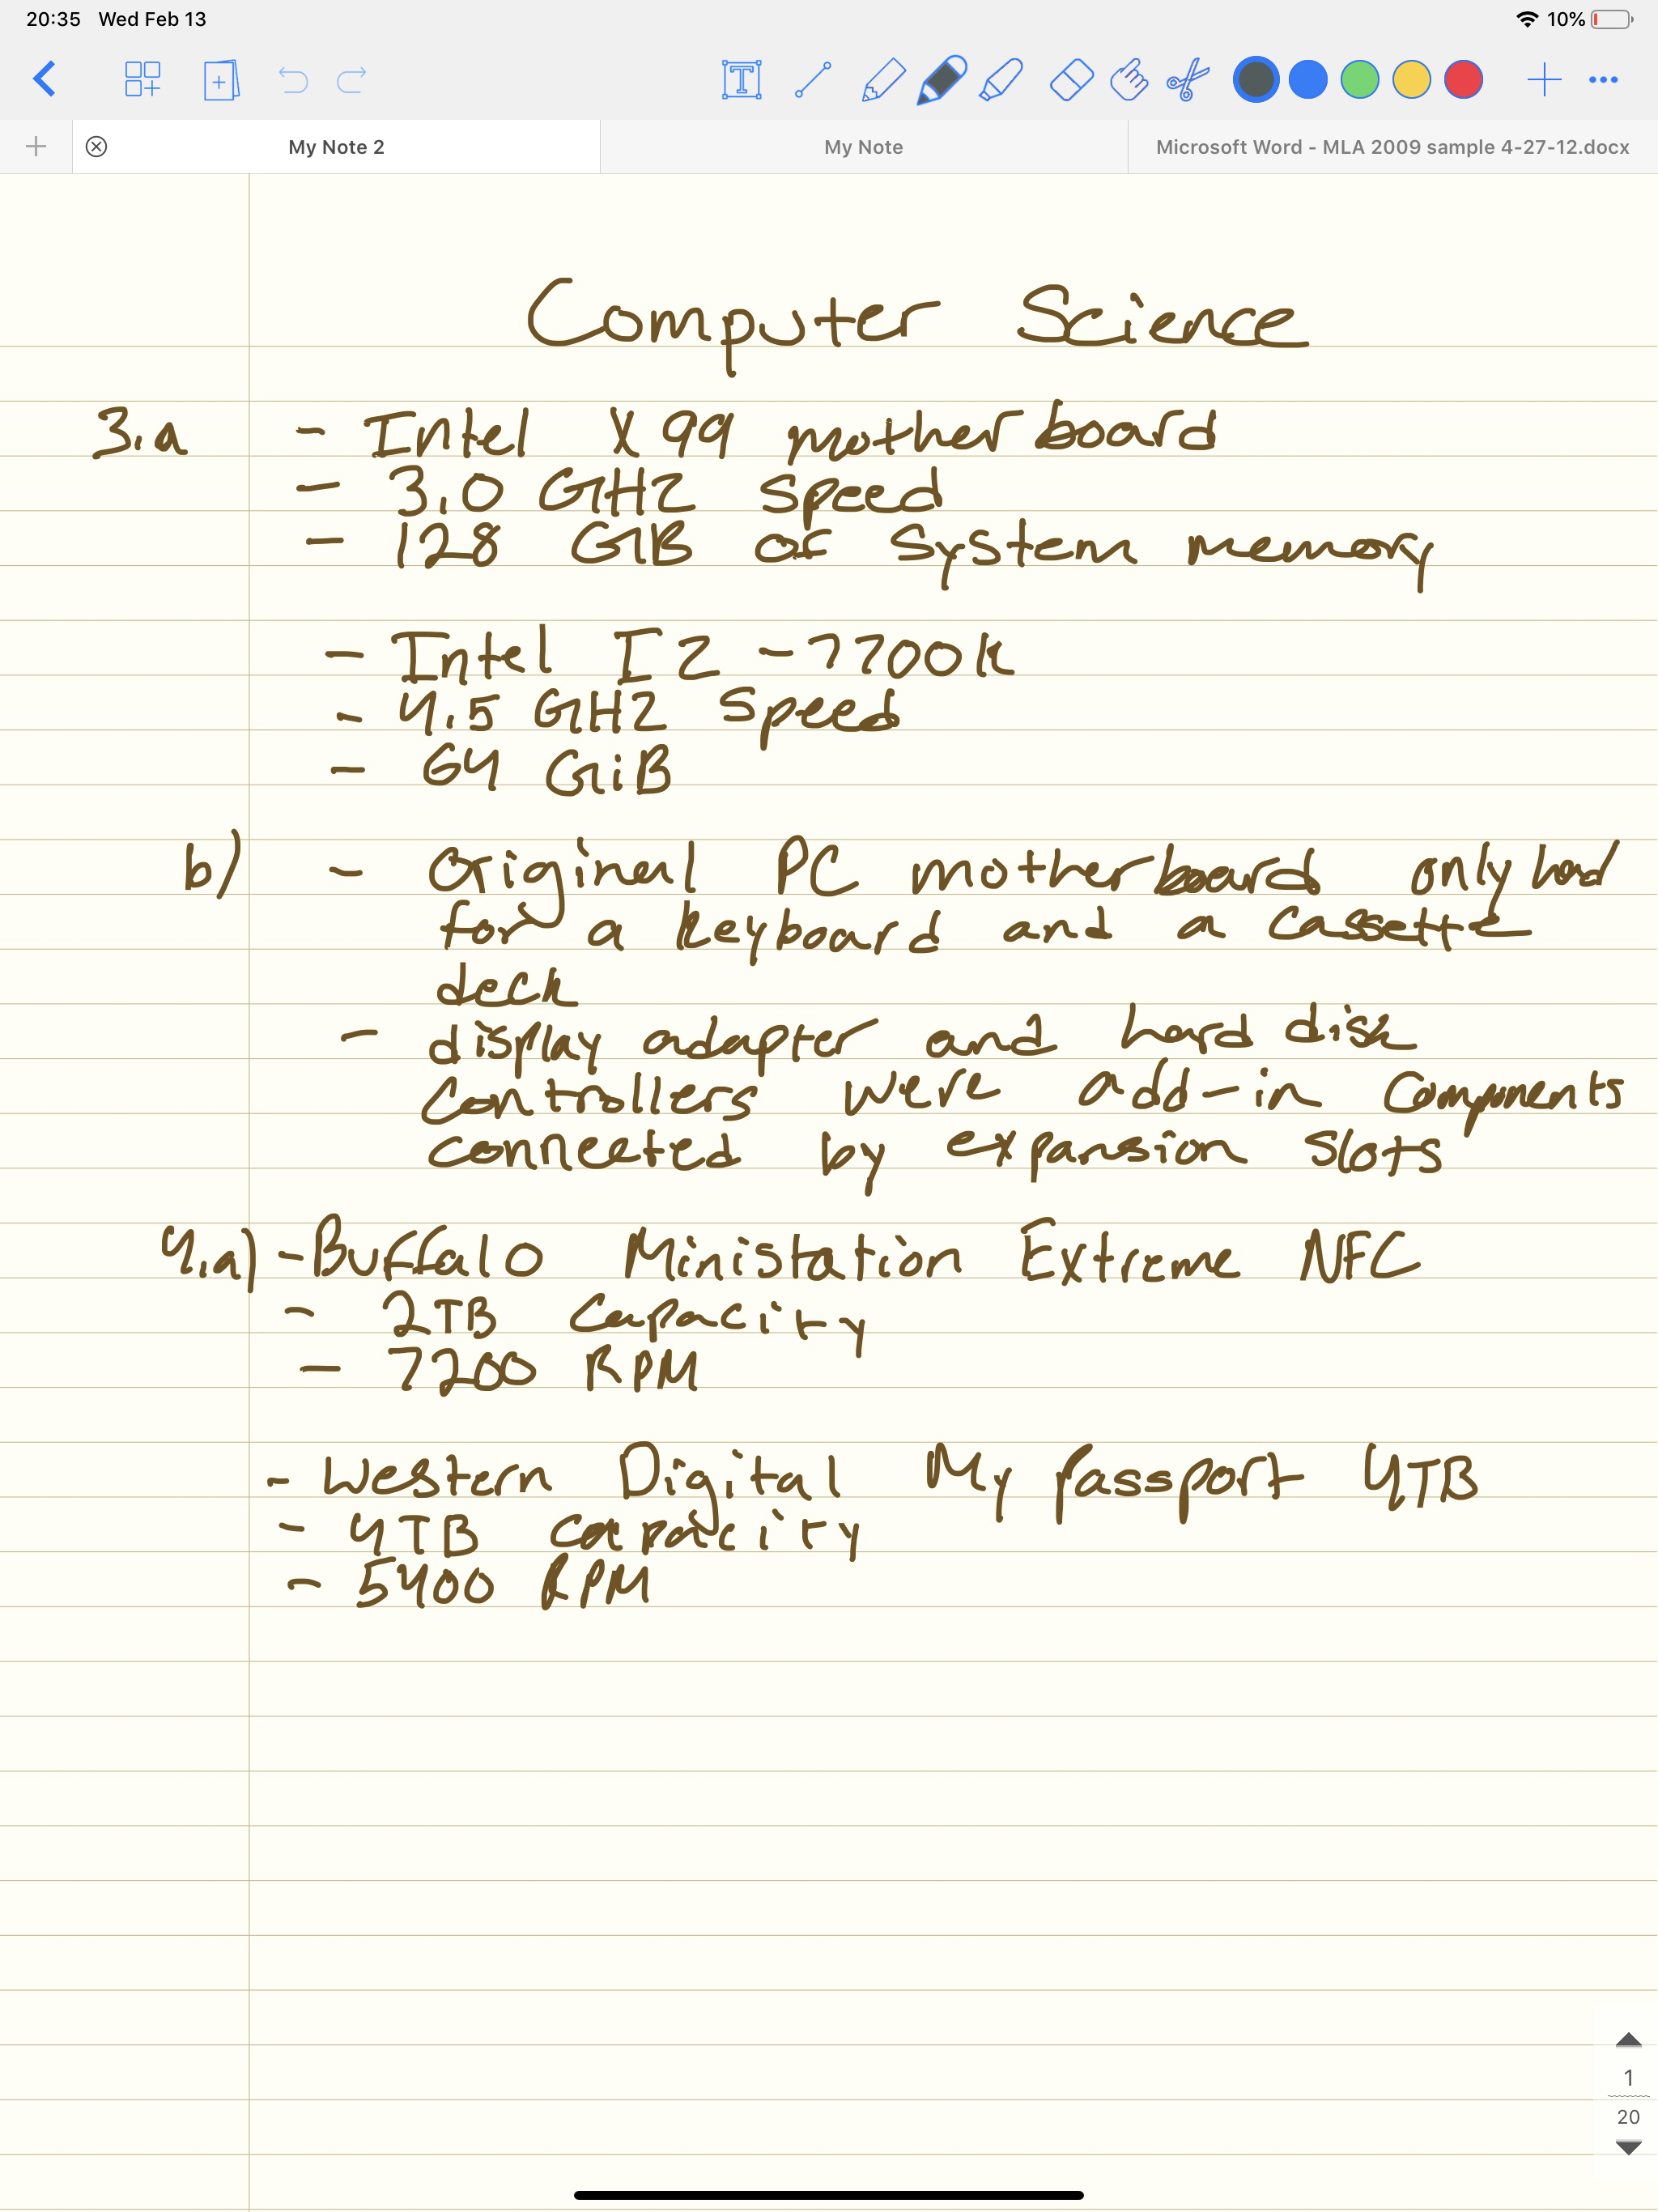 20:35 Wed Feb 13 10%
My Note 2 My Note Microsoft Word - MLA 2009 sample 4-27-12.docx
Computer Science
3.a - Intel X99 motherboard
- 3.0 GHZ Speed
- 128 GB of System memory
- Intel I7 - 7700k
- 4.5 GHZ Speed
- 64 GiB
b) - Original PC motherboard only had
for a keyboard and a cassette
deck
- display adapter and hard disk
controllers were add-in components
connected by expansion slots
4.a) - Buffalo Ministation Extreme NFC
- 2TB Capacity
- 7200 RPM
- Western Digital My Passport 4TB
- 4TB capacity
- 5400 RPM
1
20